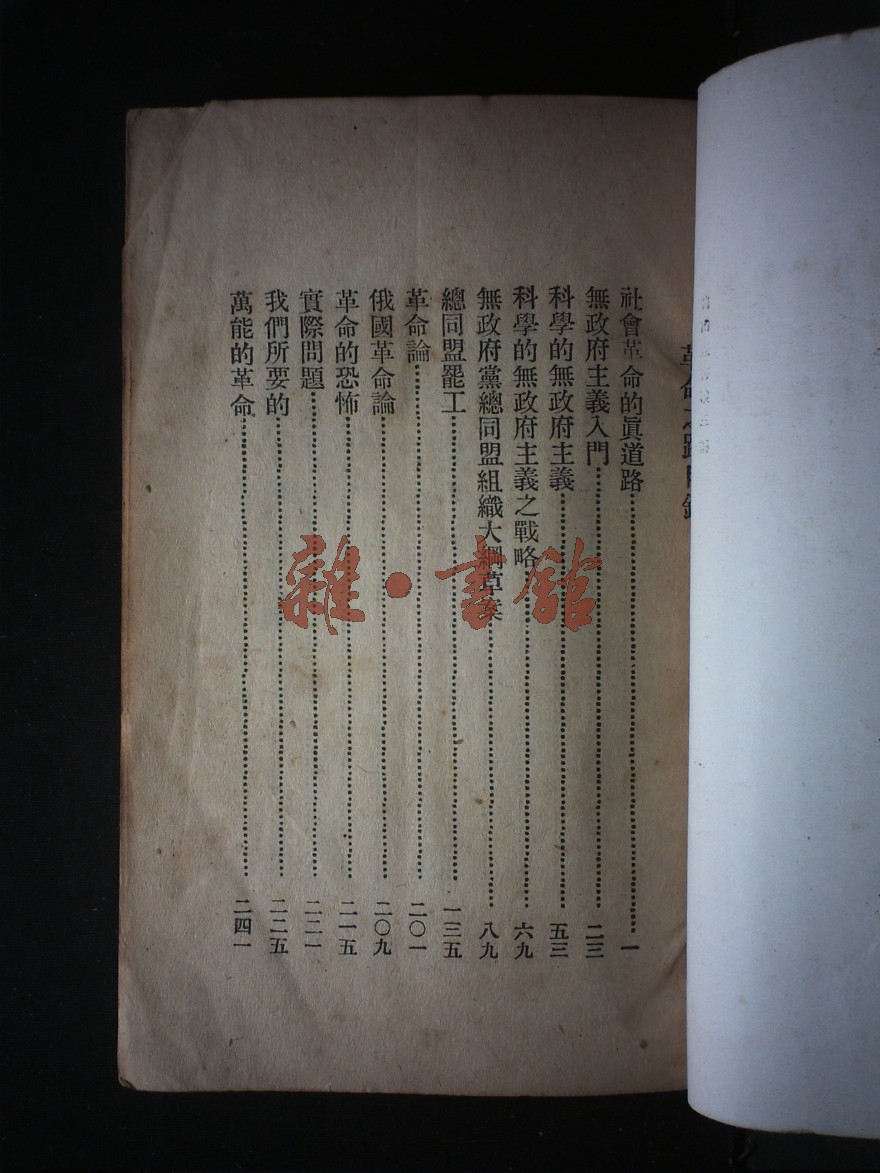 革命之路目錄
社會革命的眞道路……一
無政府主義入門……二三
科學的無政府主義……五三
科學的無政府主義之戰略……六九
無政府黨總同盟組織大綱草案……八九
總同盟罷工……一三五
革命論……二〇一
俄國革命論……二〇九
革命的恐怖……二一五
實際問題……二二一
我們所要的……二二五
萬能的革命……二四一
雜·書館